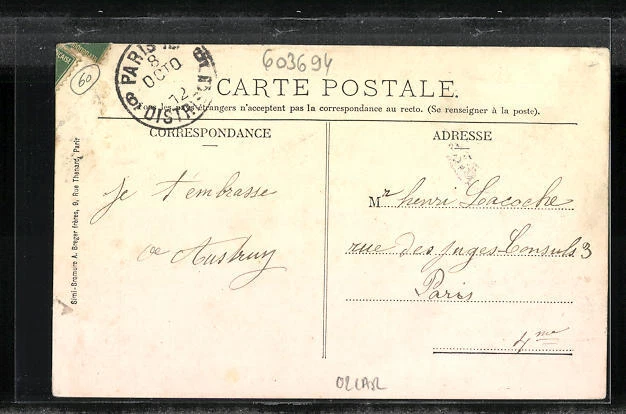 603694
60
PARIS
8
OCTO
12
DISTR
CARTE POSTALE.
Tous les pays étrangers n'acceptent pas la correspondance au recto. (Se renseigner à la poste).
CORRESPONDANCE
je t'embrasse
ADRESSE
Mr henri Lacoche
rue des juges-Consuls 3
Paris
4me
Simi-Bromure A. Breger frères, 9, Rue Thenard, Paris